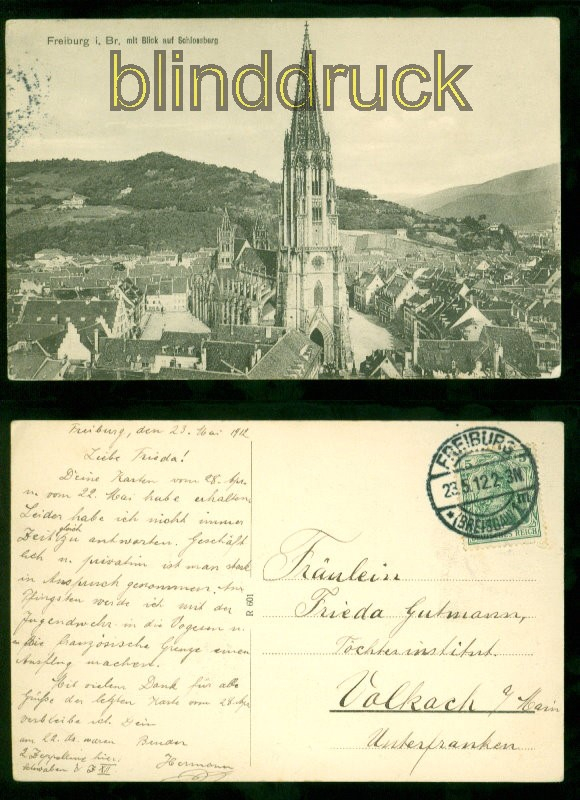 Freiburg i. Br. mit Blick auf Schlossberg
blinddruck
Freiburg, den 23. Mai 1912
Liebe Frieda!
Deine Karten vom 28. Apr.
u. vom 22. Mai habe erhalten.
Leider habe ich nicht immer
gleich
Zeit zu antworten. Geschäft
lich u. privatim ist man stark
in Anspruch genommen. An
Pfingsten werde ich mit der
Jugendwehr in die Vogesen u.
an die französische Grenze einen
Ausflug machen.
Mit vielem Dank für alle
Grüße der letzten Karte vom 28. Apr.
verbleibe ich Dein
am 22. ds. waren Bruder
2 Zeppeline hier. Hermann
Schwaben u. Z III
R 601
FREIBURG
23.5.12.2-3N
(BREISGAU)
REICH
Fräulein
Frieda Gutmann,
Töchterinstitut.
Volkach a/Main
Unterfranken